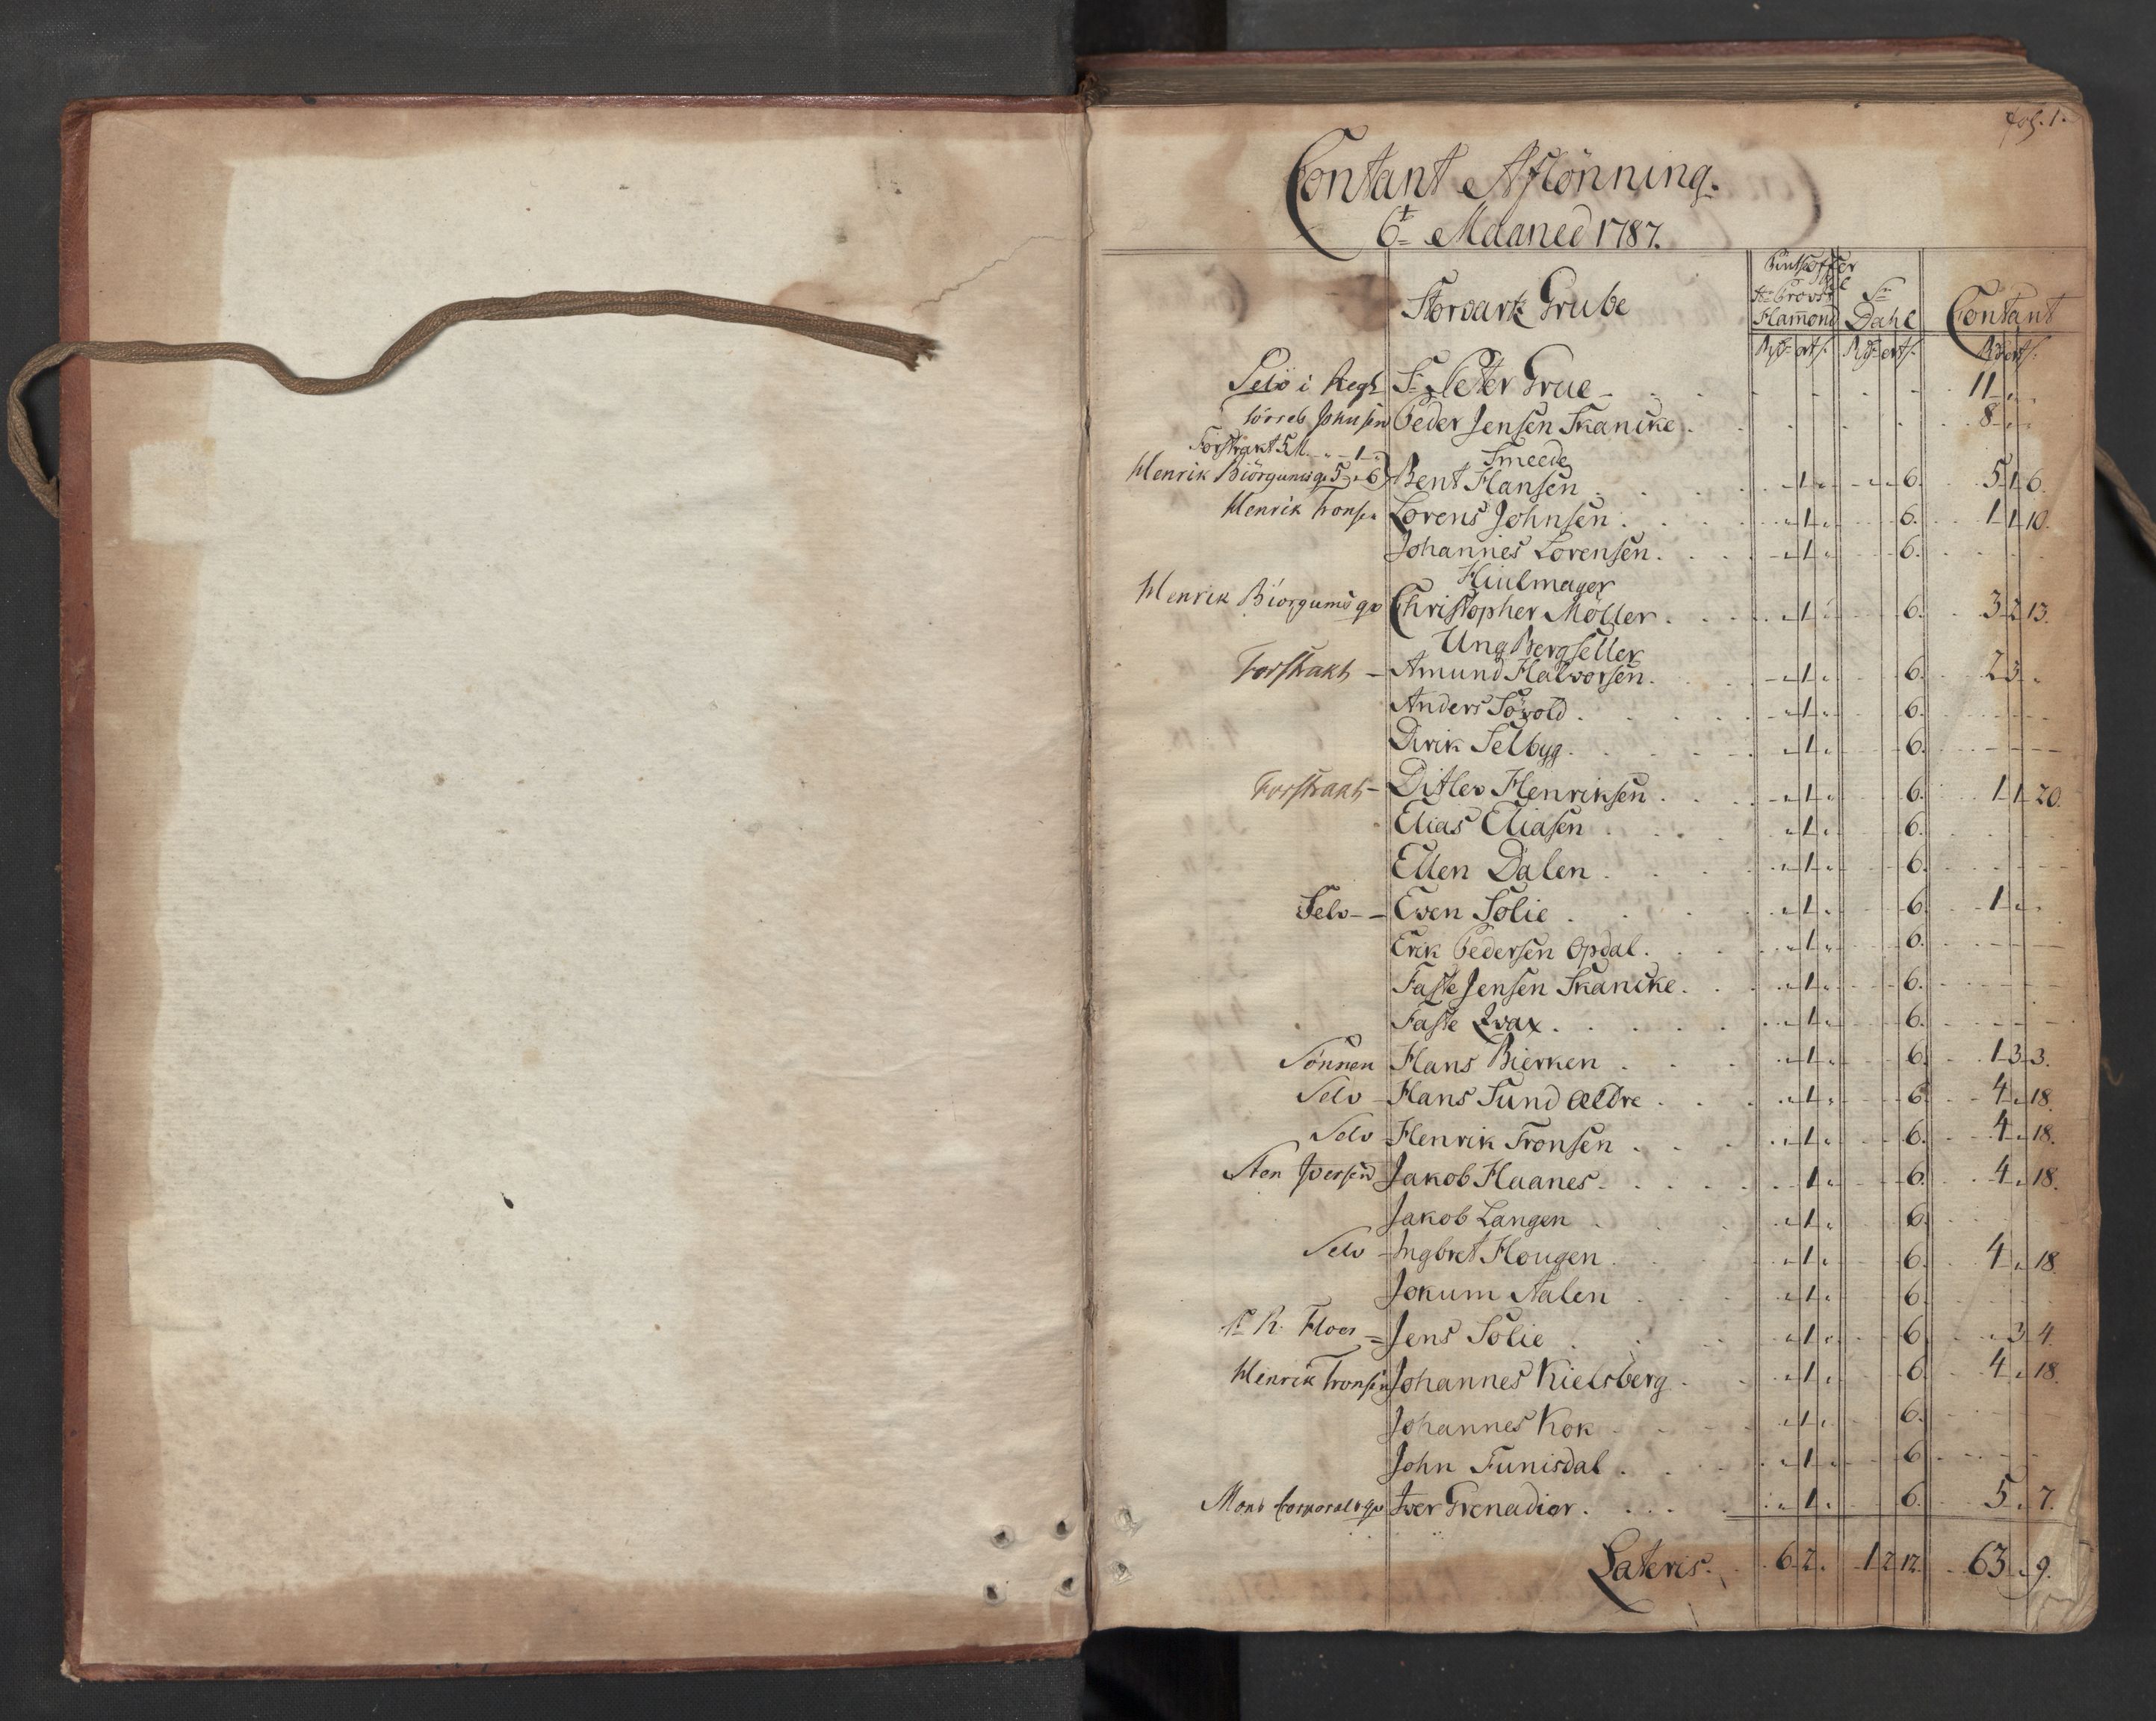 fol. 1.
Contant Aflönning.
6te Maaned 1787.
Storvarts Grube
Hr Provst Hammond
Sr Dahl
Contant
Rd ort s: Rd ort s: Rd ort s:
Selv i Regl Sr Peter Grue - 11 „ „
Peder Jensen Skancke . 8 „ „
Forstrakt 5 M. „ 1 „
Smeede
Henrik Biörgums qv 5 „ 6 Bent Hansen . „ 1 „ 6. 5 1 6.
Henrik Tronsen Lorens Johnsen . „ 1 „ 6. 1 1 10.
Johannes Lorensen . „ 1 „ 6.
Hiulmager
Henrik Biörgums qv Christopher Möller . „ 1 „ 6. 3 2 13.
Ung Bergseller
Forstrakt - Amund Halvorsen . „ 1 „ 6. 2 3 „
Anders Söwold . „ 1 „ 6.
Dirik Selbyg . „ 1 „ 6.
Forstrakt - Ditlev Henriksen . „ 1 „ 6. 1 1 20.
Elias Eliasen . „ 1 „ 6.
Ellen Dalen . „ 1 „ 6.
Selv - Even Solie . „ 1 „ 6. 1 „ „
Erik Pedersen Opdal . „ 1 „ 6.
Faste Jensen Skancke . „ 1 „ 6.
Faste Qvax . „ 1 „ 6.
Sönnen Hans Bierken . „ 1 „ 6. 1 3 3.
Selv - Hans Sund Ældre . „ 1 „ 6. 4 „ 18.
Selv - Henrik Tronsen . „ 1 „ 6. 4 „ 18.
Sten Iversen Jakob Haanes . „ 1 „ 6. 4 „ 18.
Jakob Langen . „ 1 „ 6.
Selv - Ingbret Hougen . „ 1 „ 6. 4 „ 18.
Jokum Aalen . „ 1 „ 6.
Sr R. Floer = Jens Solie . „ 1 „ 6. „ 3 4.
Henrik Tronsen Johannes Kielsberg . „ 1 „ 6. 4 „ 18.
Johannes Kok „ 1 „ 6.
John Funisdal . „ 1 „ 6.
Mons Corporals qv Iver Grenadier . „ 1 „ 6. 5 „ 7.
Lateris . 6 2 „ 1 2 12. 63 „ 9.